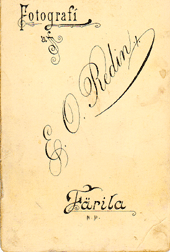 Fotografi
af
E. O. Redin
Färila